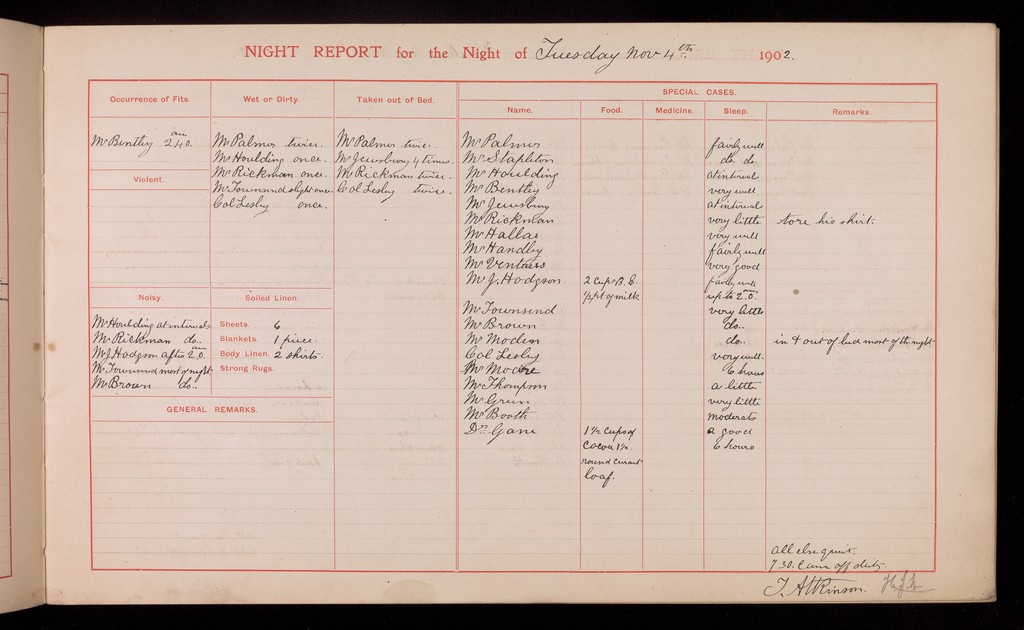 NIGHT REPORT for the Night of Tuesday Nov 4th 1902.
Occurrence of Fits.
Mr Bentley 2.40. am
Violent.
Noisy.
Mr Houlding at interval
Mr Rickman do..
Mr J Hodgson after 2.0. am
Mr Townsend most of night
Mr Brown do..
Wet or Dirty.
Mr Palmer twice.
Mr Houlding once.
Mr Rickman once.
Mr Townsend slight once
Col Lesley once.
Soiled Linen.
Sheets. 6
Blankets. 1 piece.
Body Linen. 2 shirts.
Strong Rugs.
GENERAL REMARKS.
Taken out of Bed.
Mr Palmer twice.
Mr Jewsbury 4 times.
Mr Rickman twice.
Col Lesley twice.
SPECIAL CASES.
Name. Food. Medicine. Sleep. Remarks.
Mr Palmer fairly well
Mr Stapleton do. do
Mr Houlding at interval
Mr Bentley very well
Mr Jewsbury at interval
Mr Rickman very little tore his shirt.
Mr Hallas very well
Mr Handley fairly well
Mr Ventures very good
Mr J. Hodgson 2 Cups B. E. fairly well
1/2 pt of milk up to 2.0. am
Mr Townsend very little
Mr Brown do..
Mr Moden do.. in & out of bed most of the night
Col Lesley very well.
Mr Moore 6 hours
Mr Thompson a little
Mr Green very little
Mr Booth moderate
Dr Gane 1 1/2 Cups of a good
Cocoa 1 1/2 6 hours
round Currant
loaf.
All else quiet.
7.30. Came off duty.
T. Atkinson.